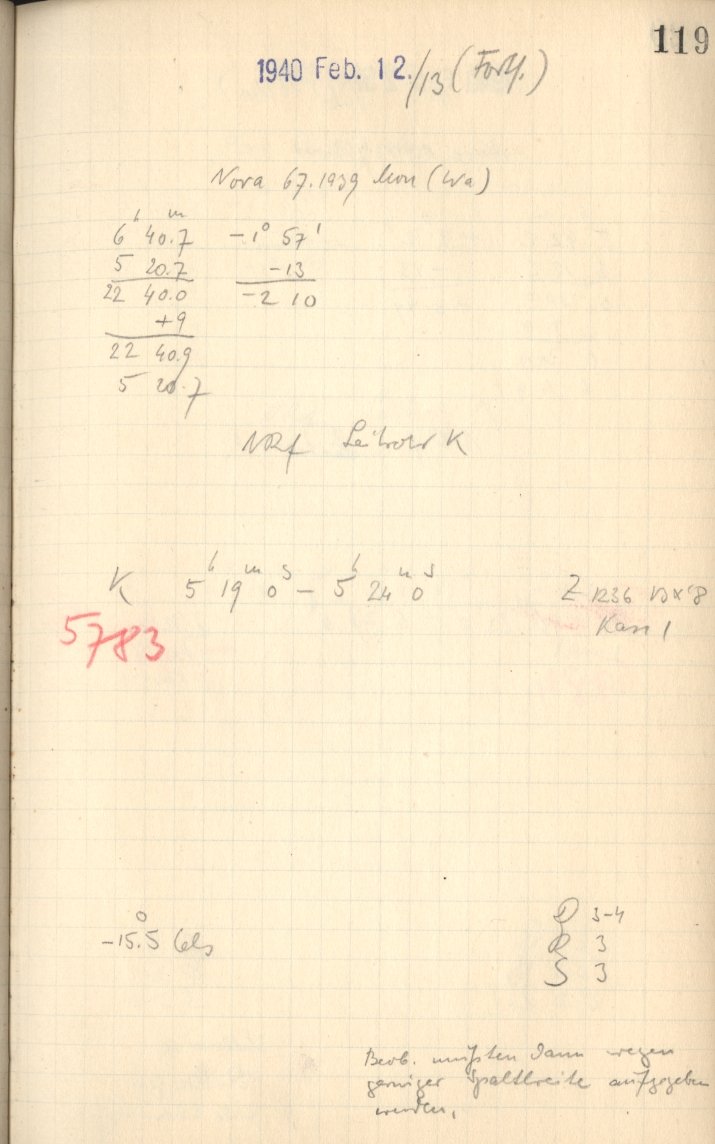 119
1940 Feb. 12./13 (Forts.)
Nova 67.1939 Mon (Wa)
6ʰ 40.7ᵐ   −1° 57'
5 20.7   −13
22 40.0   −2 10
+9
22 40.9
5 20.7
NRf Leitrohr K
K 5ʰ 19ᵐ 0ˢ – 5ʰ 24ᵐ 0ˢ   Z 1236
5783   Kass 1
−15.°5 Cels
D 3-4
R 3
S 3
Beob. mußten dann wegen
geringer Spaltbreite aufgegeben
werden.